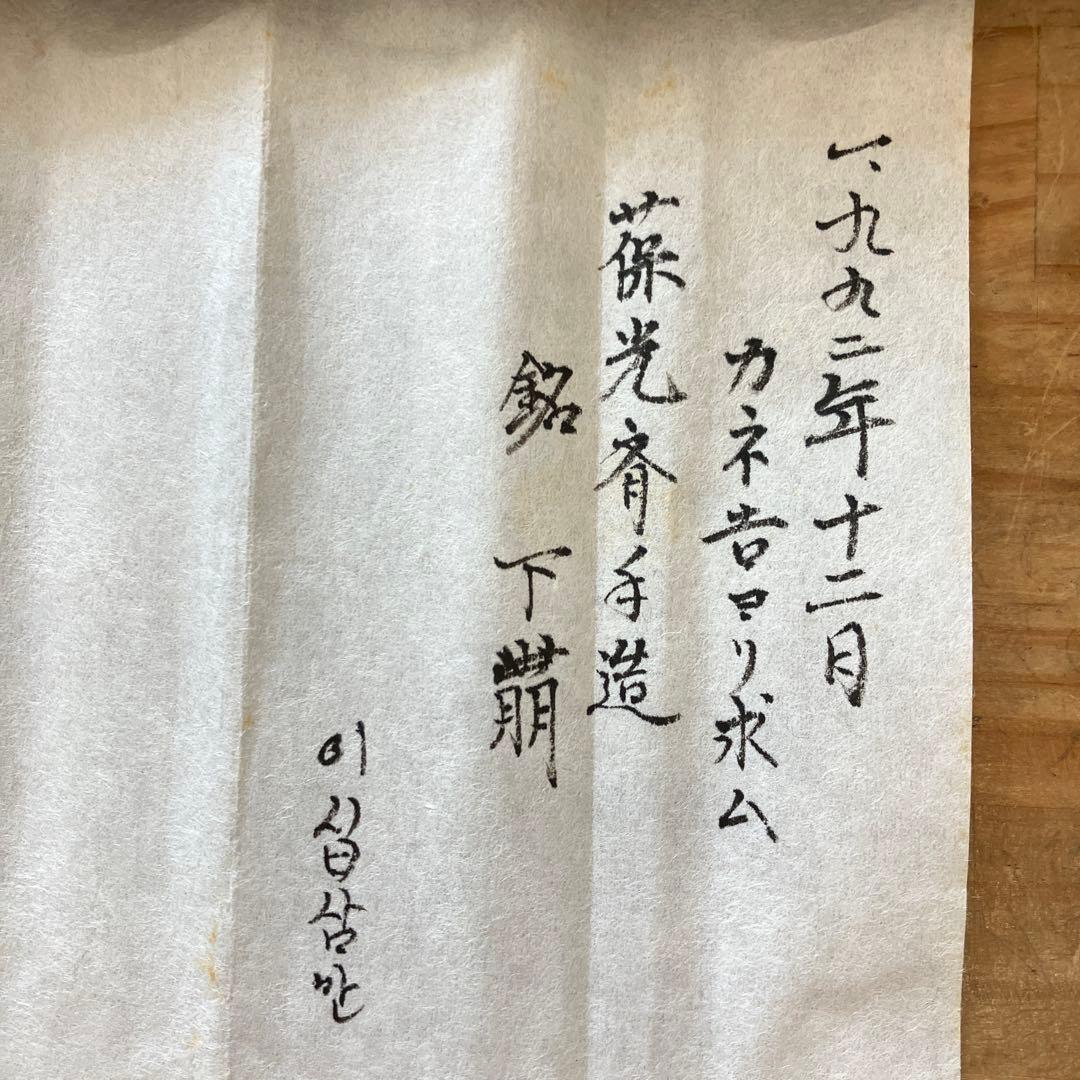 一、九九二年十二月
カネ吉ヨリ求ム
葆光斉手造
銘 下萠
이십삼만